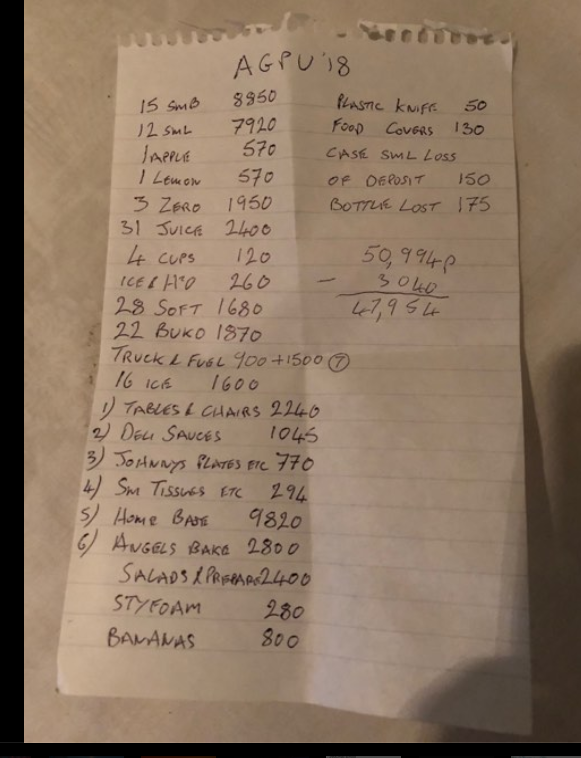 AGPU '18
15 SMB 8850
12 SML 7920
1 APPLE 570
1 LEMON 570
3 ZERO 1950
31 JUICE 2400
4 CUPS 120
ICE & H²O 260
28 SOFT 1680
22 BUKO 1870
TRUCK & FUEL 900 + 1500 ⑦
16 ICE 1600
1) TABLES & CHAIRS 2240
2) DELI SAUCES 1045
3) JOHNNYS PLATES ETC 770
4) SM TISSUES ETC 294
5) HOME BASE 9820
6) ANGELS BAKE 2800
SALADS & PREPARE 2400
STYFOAM 280
BANANAS 800
PLASTIC KNIFE 50
FOOD COVERS 130
CASE SML LOSS
OF DEPOSIT 150
BOTTLE LOST 175
50,994p
- 3040
47,954